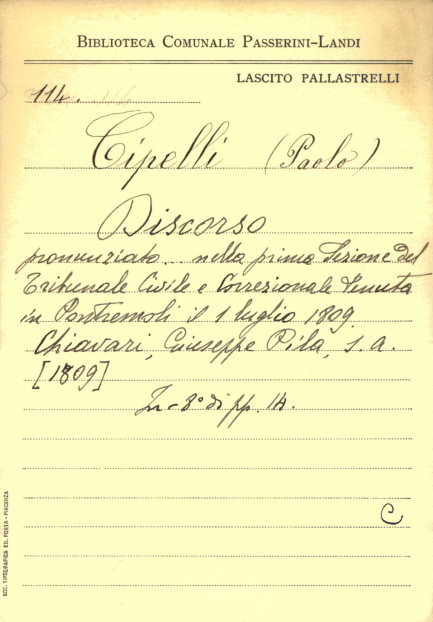 BIBLIOTECA COMUNALE PASSERINI-LANDI
LASCITO PALLASTRELLI
114.
Cipelli (Paolo)
Discorso
pronunziato nella prima Sezione del
Tribunale Civile e Correzionale tenuta
in Pontremoli il 1 luglio 1809.
Chiavari, Giuseppe Pila, s. a.
[1809]
In-8° di pp. 14.
C
SOC. TIPOGRAFICA ED. PORTA - PIACENZA